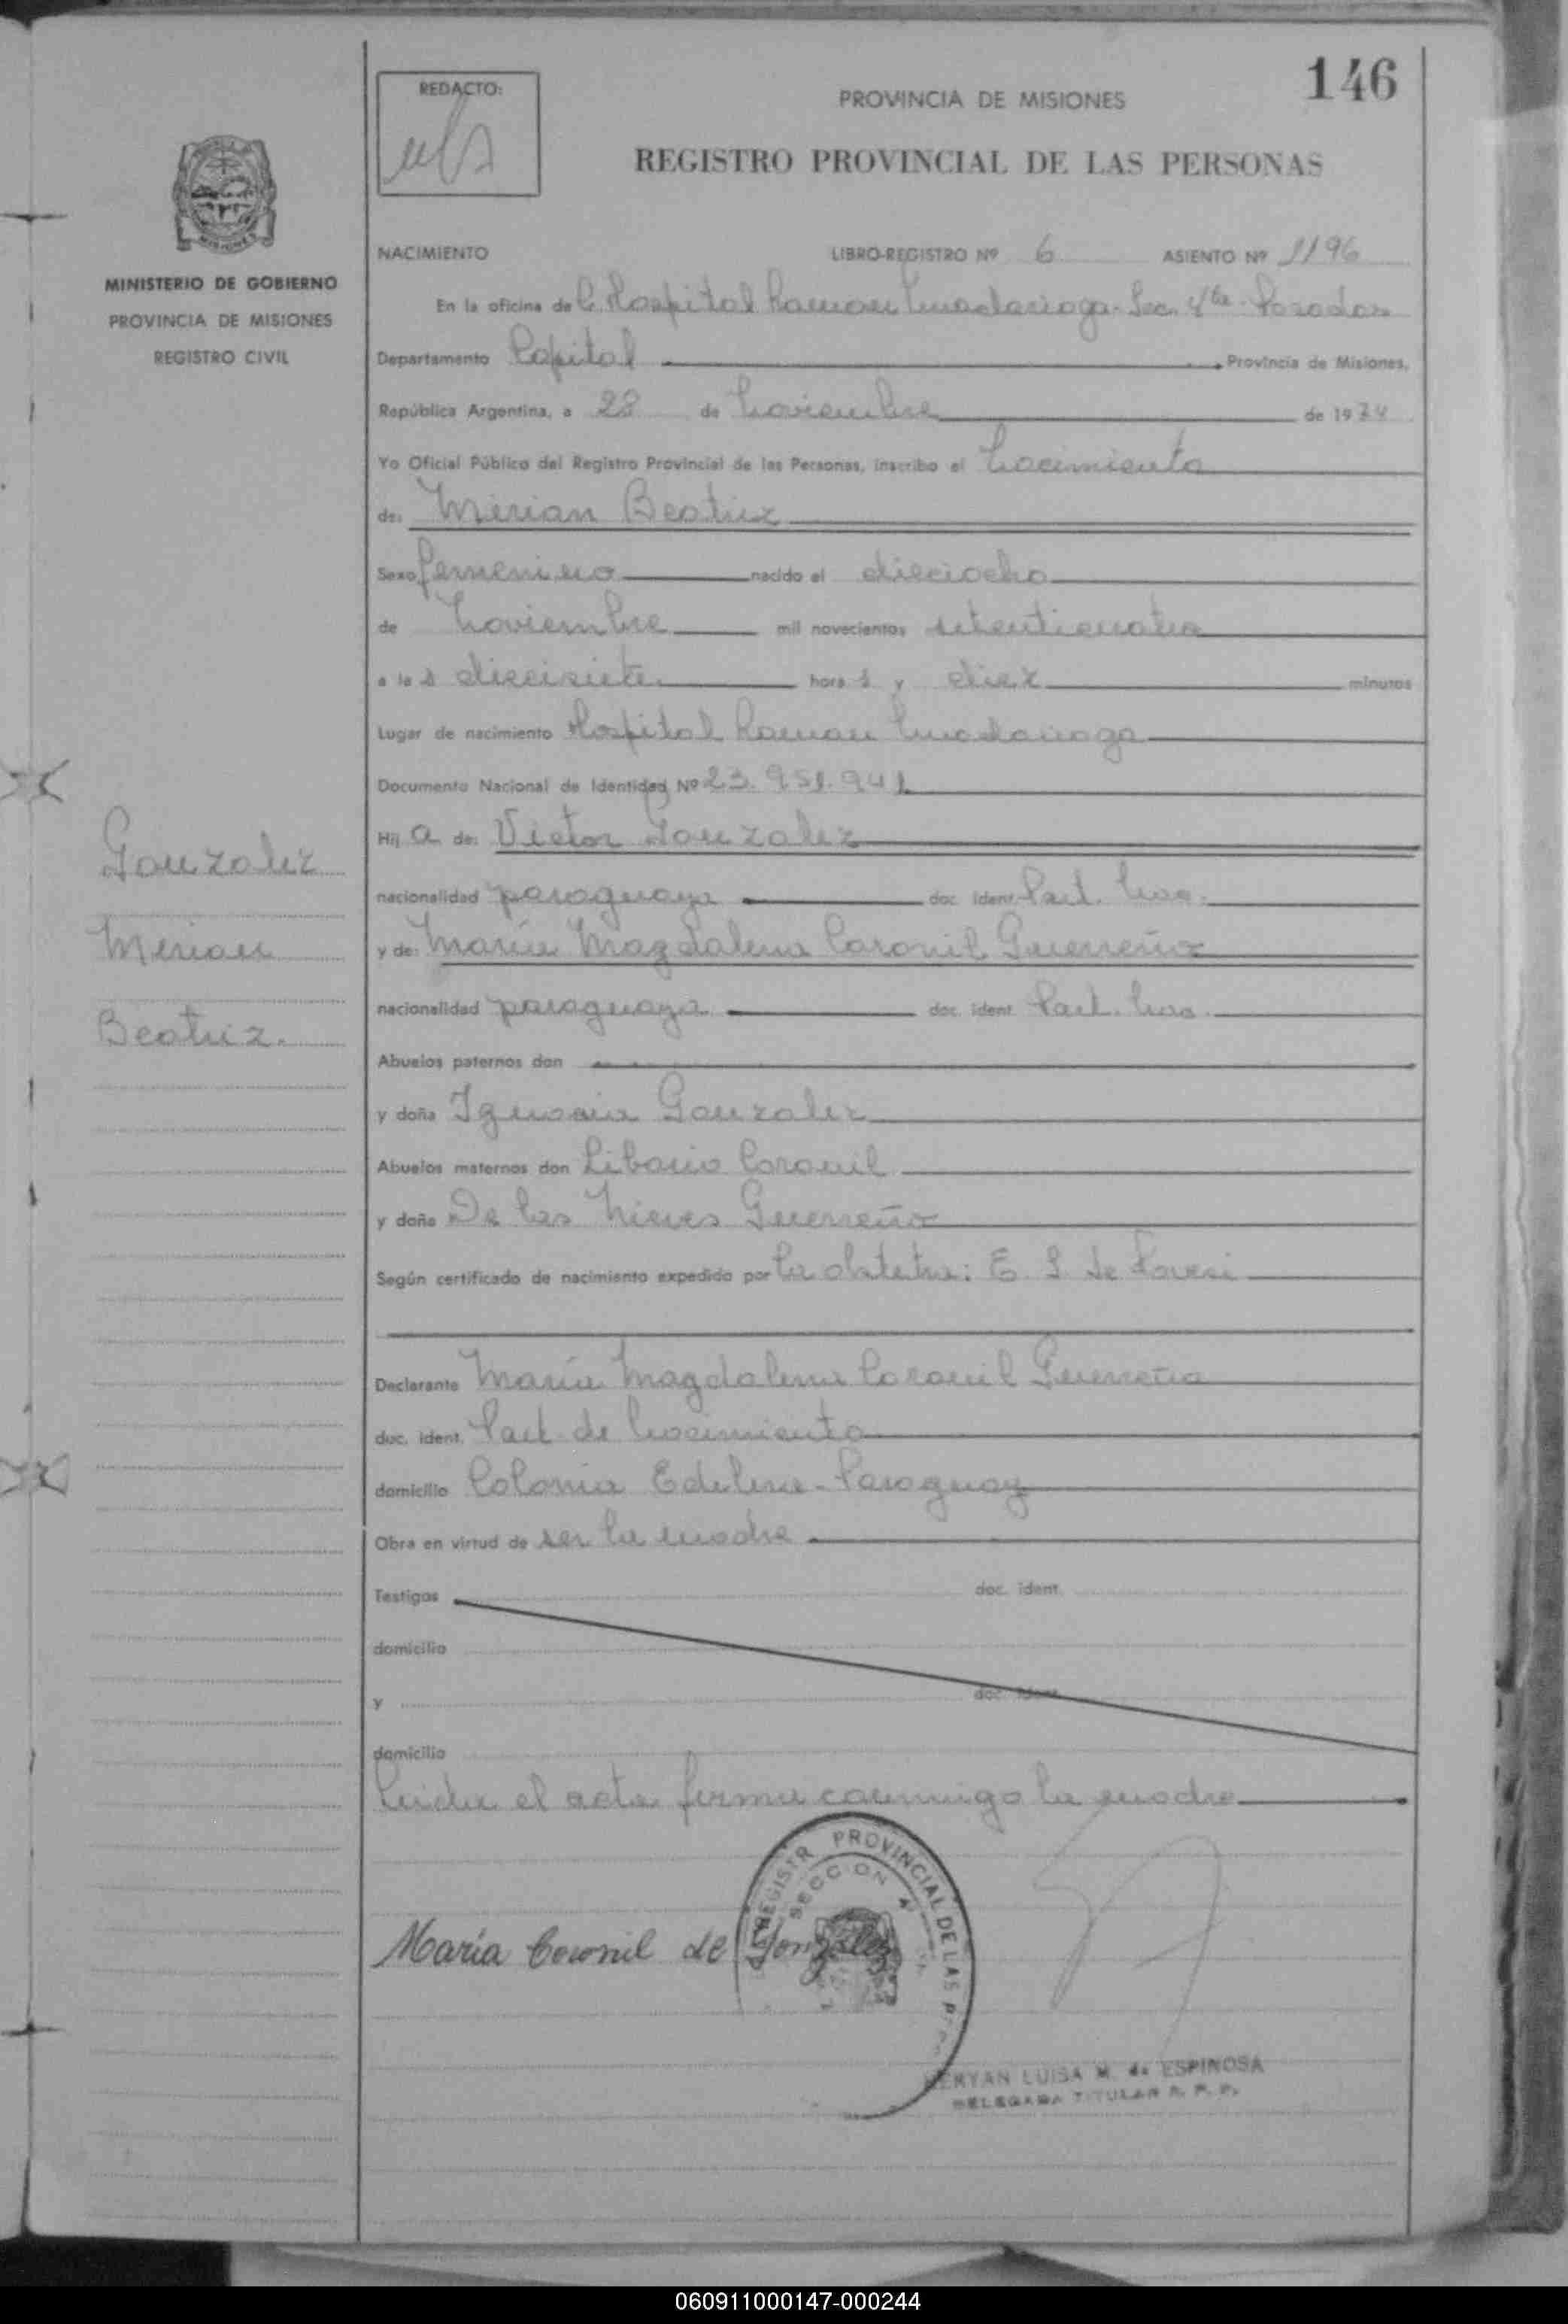 146
REDACTO:
PROVINCIA DE MISIONES
REGISTRO PROVINCIAL DE LAS PERSONAS
MISIONES
MINISTERIO DE GOBIERNO
PROVINCIA DE MISIONES
REGISTRO CIVIL
NACIMIENTO LIBRO-REGISTRO Nº 6 ASIENTO Nº 1196
En la oficina de C. Hospital Ramon Madariaga. Sec. 4ta. Posadas
Departamento Capital Provincia de Misiones,
República Argentina, a 28 de Noviembre de 1974
Yo Oficial Público del Registro Provincial de las Personas, inscribo el Nacimiento
de: Mirian Beatriz
Sexo femenino nacido el dieciocho
de Noviembre mil novecientos setenticuatro
a la s diecisiete hora s y diez minutos
Lugar de nacimiento Hospital Ramon Madariaga
Documento Nacional de Identidad Nº 23.951.941
Hij a de: Victor Gonzalez
nacionalidad paraguaya doc. ident. Part. Nac.
y de: María Magdalena Coronil Guerreño
nacionalidad paraguaya doc. ident. Part. Nac.
Abuelos paternos don
y doña Ignacia Gonzalez
Abuelos maternos don Liborio Coronil
y doña De las Nieves Guerreño
Según certificado de nacimiento expedido por la obstetra: E. S. de
Declarante María Magdalena Coronil Guerreño
doc. ident. Part. de Nacimiento
domicilio Colonia Edelira - Paraguay
Obra en virtud de ser la madre
Testigos doc. ident.
domicilio
y doc. ident.
domicilio
Leida el acta firma conmigo la madre
Gonzalez
Mirian
Beatriz.
REGISTR PROVINCIAL DE LAS
SECCION 4
María Coronil de Gonzalez
LUISA M. de ESPINOSA
DELEGADA TITULAR R. P. P.
060911000147-000244